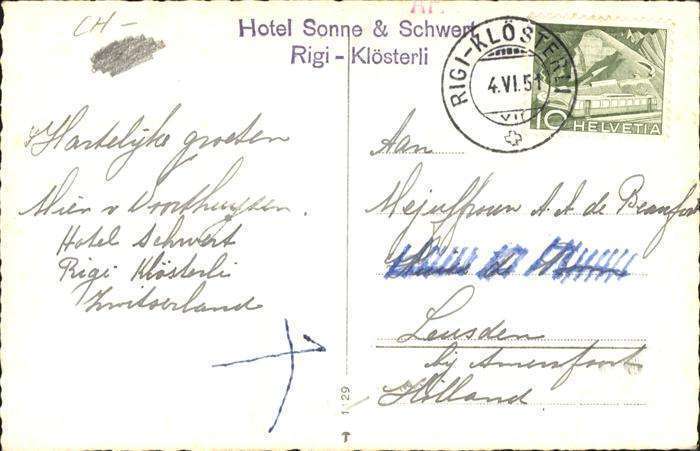 CH-
Hotel Sonne & Schwert
Rigi - Klösterli
RIGI-KLÖSTERLI
4.VI.51
VII
10 HELVETIA
Hartelijke groeten
Mien v Voorthuysen.
Hotel Schwert
Rigi Klösterli
Zwitserland
Aan
Mejuffrouw A. A. de Beaufort
Huis de
Leusden
bij Amersfoort
Holland
1 29